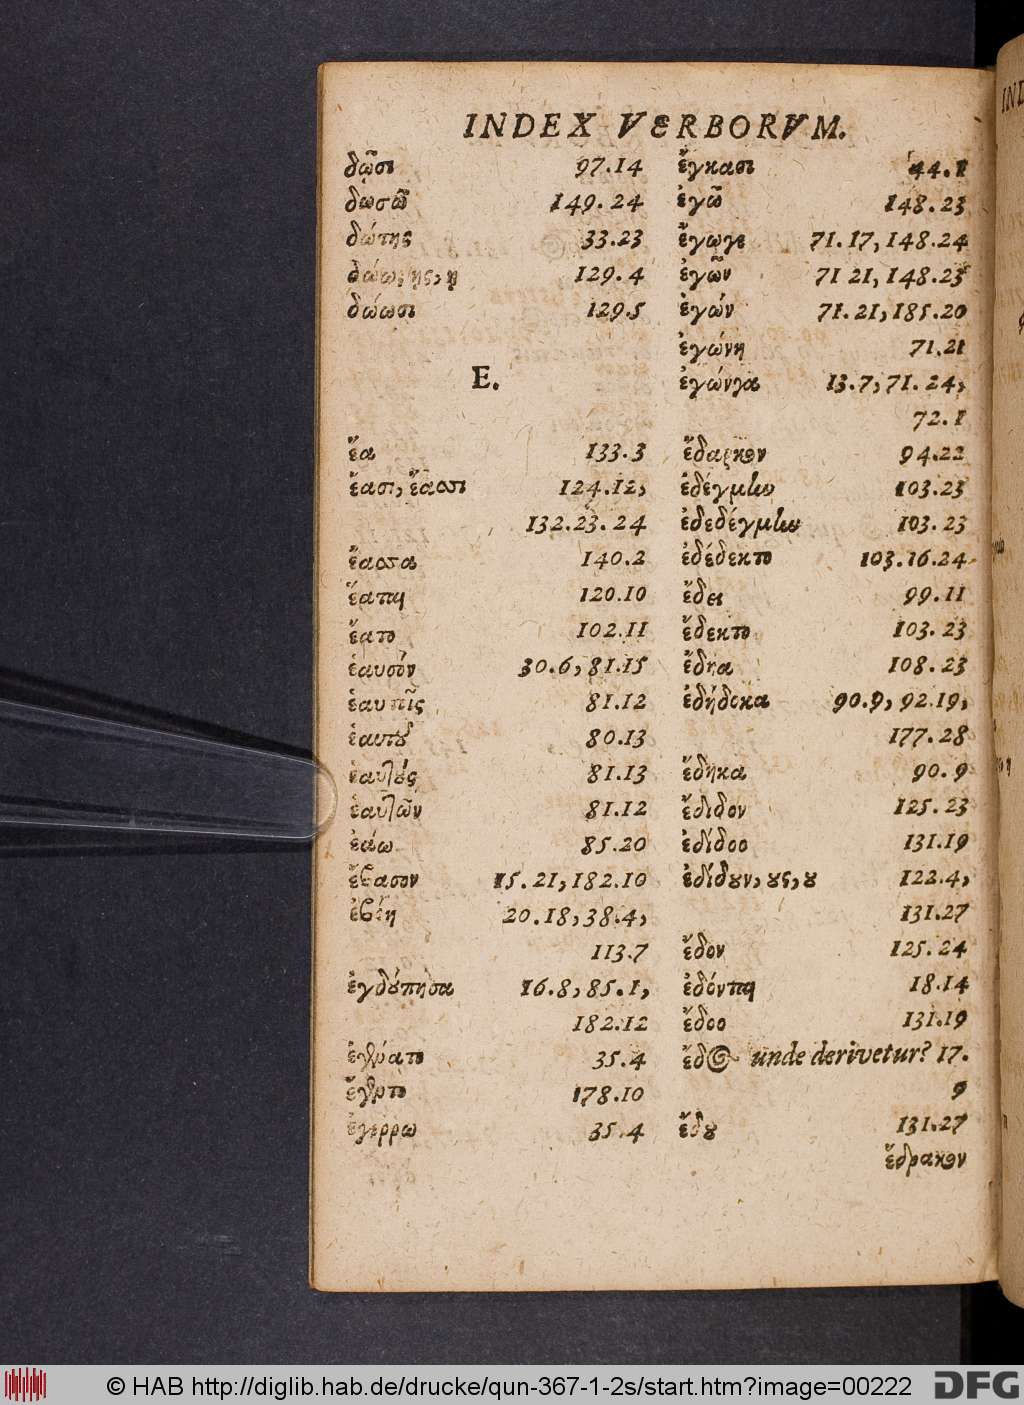 INDEX VERBORVM.
δῷσι 97.14
δωσῶ 149.24
δώτης 33.23
δώω, ης, η 129.4
δώωσι 129.5
E.
ἔα 133.3
ἔασι, ἔασσι 124.12,
132.23.24
ἔασσα 140.2
ἕαται 120.10
ἕατο 102.11
ἑαυτόν 30.6, 81.15
ἑαυτοῖς 81.12
ἑαυτοῦ 80.13
ἑαυτούς 81.13
ἑαυτῶν 81.12
ἐάω 85.20
ἔβασον 15.21, 182.10
20.18, 38.4,
113.7
ἐγδούπησα 16.8, 85.1,
182.12
35.4
ἔγεντο 178.10
ἐγερρω 35.4
ἔγκασι 44.1
ἐγῶ 148.23
ἔγωγε 71.17, 148.24
ἐγῶν 71 21, 148.23
ἐγών 71.21, 185.20
ἐγώνη 71.21
ἐγώνγα 13.7, 71.24,
72.1
ἔδαρκον 94.22
ἐδέγμην 103.23
ἐδεδέγμην 103.23
ἐδέδεκτο 103.16.24
ἔδει 99.11
ἔδεκτο 103.23
ἔδηα 108.23
ἐδήδοκα 90.9, 92.19,
177.28
ἔδηκα 90.9
ἔδιδον 125.23
ἐδίδοο 131.19
ἐδίδουν, ους, ου 122.4,
131.27
ἔδον 125.24
ἐδόνται 18.14
ἔδοο 131.19
ἔδος unde derivetur? 17.
9
ἔδου 131.27
ἔδρακον
© HAB http://diglib.hab.de/drucke/qun-367-1-2s/start.htm?image=00222
DFG